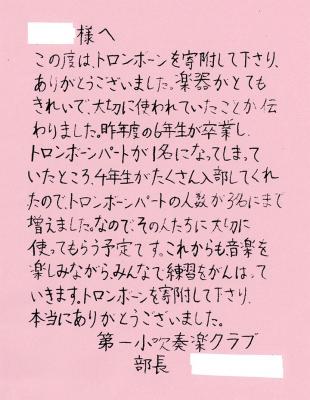 様へ
この度は、トロンボーンを寄附して下さり、
ありがとうございました。楽器がとても
きれいで、大切に使われていたことが伝
わりました。昨年度の6年生が卒業し、
トロンボーンパートが1名になってしまって
いたところ、4年生がたくさん入部してくれ
たので、トロンボーンパートの人数が3名にまで
増えました。なので、その人たちに大切に
使ってもらう予定です。これからも音楽を
楽しみながら、みんなで練習をがんばって
いきます。トロンボーンを寄附して下さり、
本当にありがとうございました。
第一小吹奏楽クラブ
部長